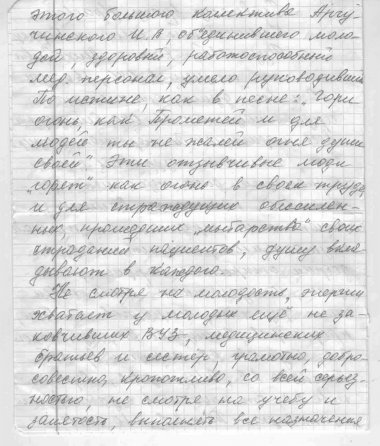 этого большого коллектива Аргу-
чинского И.В, объединившего моло-
дой, здоровый, работоспособный
мед. персонал, умело руководивший
По истине, как в песне: „Гори
огонь, как Прометей и для
людей ты не жалей огня души
своей" Эти отзывчивые люди
„горят" как огонь в своем труде,
и для страждущих обессилен-
ных, прошедших „мытарства" своих
страданий пациентов, душу вкла-
дывают в каждого.
Не смотря на молодость, энергии
хватает у молодых ещё не за-
кончивших ВУЗ, медицинских
братьев и сестёр, грамотно, добро-
совестно, кропотливо, со всей серьёз-
ностью, не смотря на учёбу и
занятость, выполнять все назначения